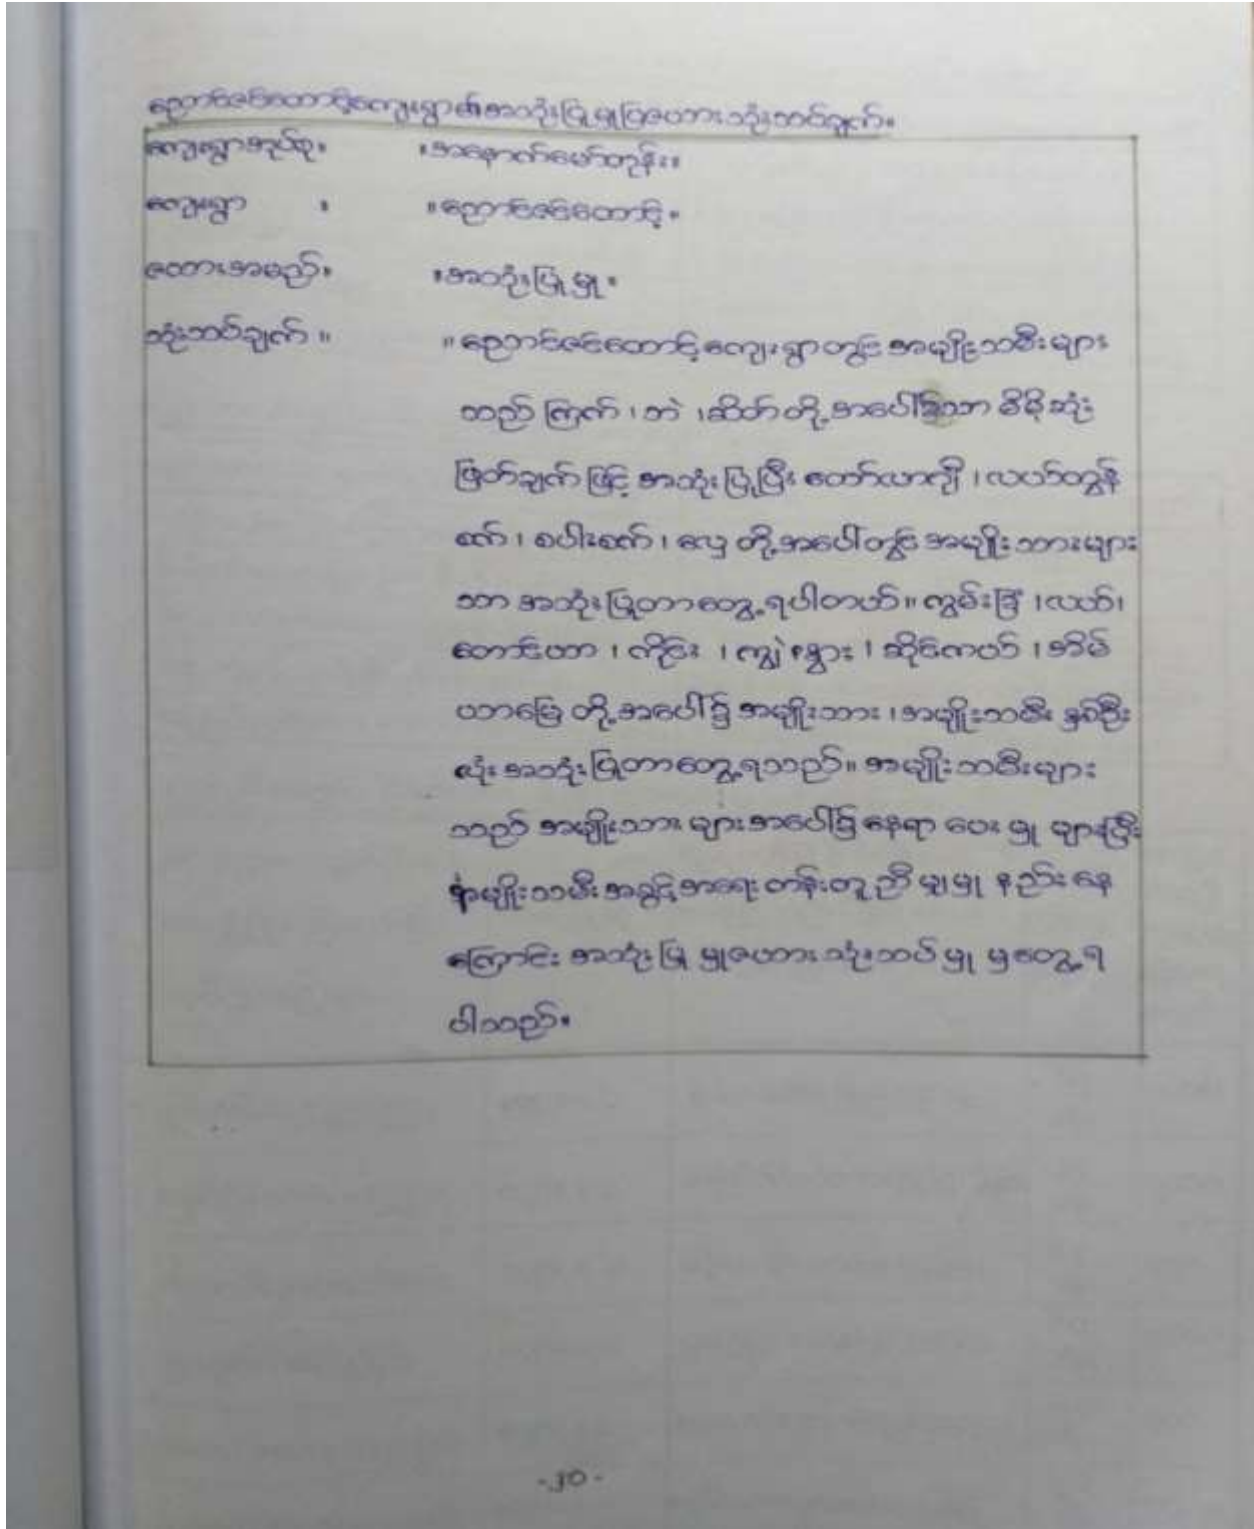 ညောင်ဇင်ထောင့်ကျေးရွာ၏အသုံးပြုမှုပြဇယားသုံးသပ်ချက်။
ကျေးရွာအုပ်စု။ ။အနောက်မော်တုန်း။
ကျေးရွာ ။ ။ညောင်ဇင်ထောင့်။
ဇယားအမည်။ ။အသုံးပြုမှု။
သုံးသပ်ချက် ။ ။ညောင်ဇင်ထောင့်ကျေးရွာတွင် အမျိုးသမီးများ
သည် ကြက် ၊ ဘဲ ၊ဆိတ် တို့အပေါ်၌သာ မိမိဆုံး
ဖြတ်ချက်ဖြင့် အသုံးပြုပြီး တော်လာဂျီ ၊ လယ်ထွန်
စက် ၊ စပါးစက် ၊ လှေ တို့အပေါ်တွင် အမျိုးသားများ
သာ အသုံးပြုတာတွေ့ရပါတယ်။ ကွမ်းခြံ ၊လယ်၊
တောင်ယာ ၊ ကိုင်း ၊ ကျွဲ နွား ၊ ဆိုင်ကယ် ၊ အိမ်
ယာမြေ တို့အပေါ်၌ အမျိုးသား ၊အမျိုးသမီး နှစ်ဦး
လုံး အသုံးပြုတာတွေ့ရသည်။ အမျိုးသမီးများ
သည် အမျိုးသား များအပေါ်၌ နေရာ ပေး မှု များပြီး
အမျိုးသမီးအခွင့်အရေး တန်းတူ ညီ မျှမှု နည်း နေ
ကြောင်း အသုံးပြု မှုဇယား သုံးသပ် မှု မှတွေ့ရ
ပါသည်။
-၃၀-